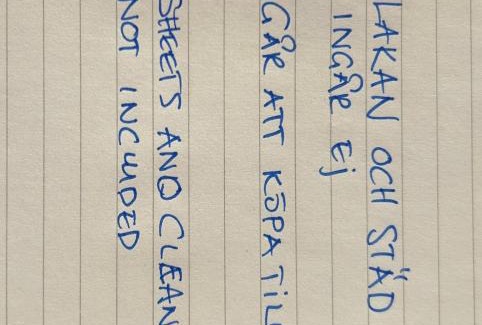 LAKAN OCH STÄD
INGÅR Ej
GÅR ATT KÖPA TiLL
SHEETS AND CLEAN
NOT INCLUDED